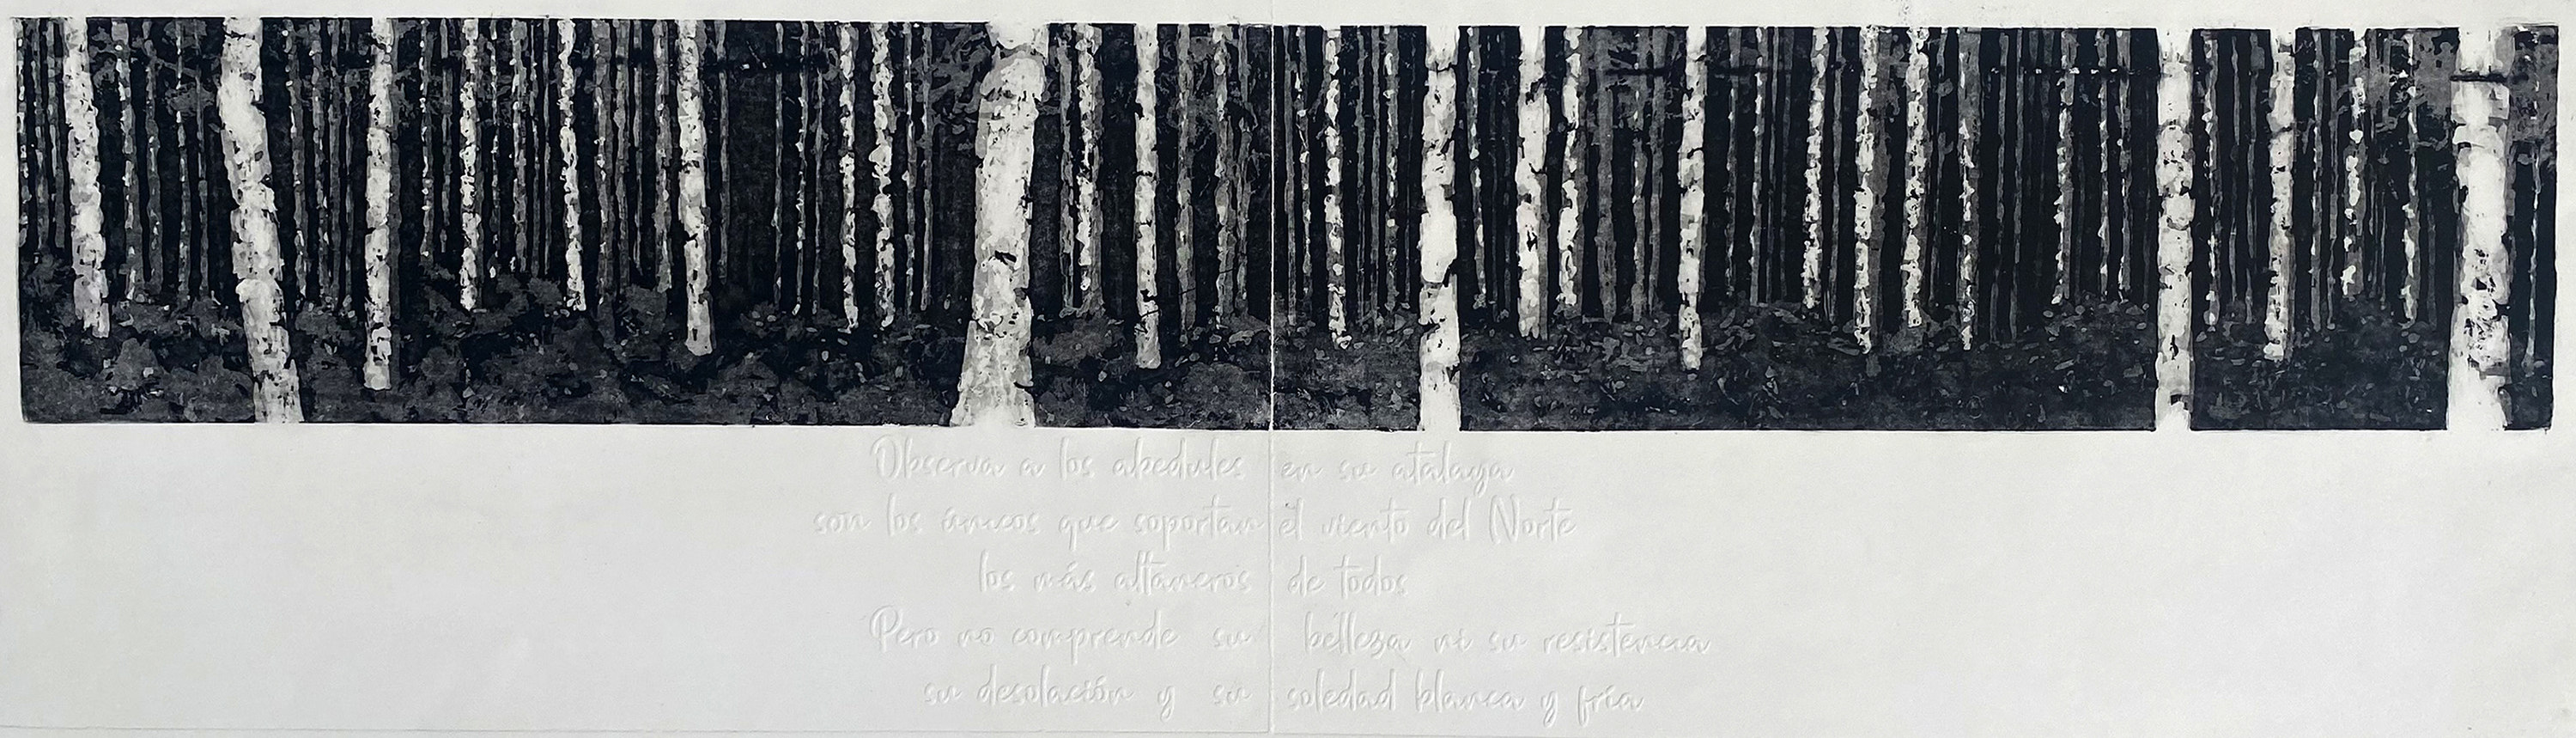 Observa a los abedules en su atalaya
son los únicos que soportan el viento del Norte
los más altaneros de todos
Pero no comprende su belleza ni su resistencia
su desolación y su soledad blanca y fría